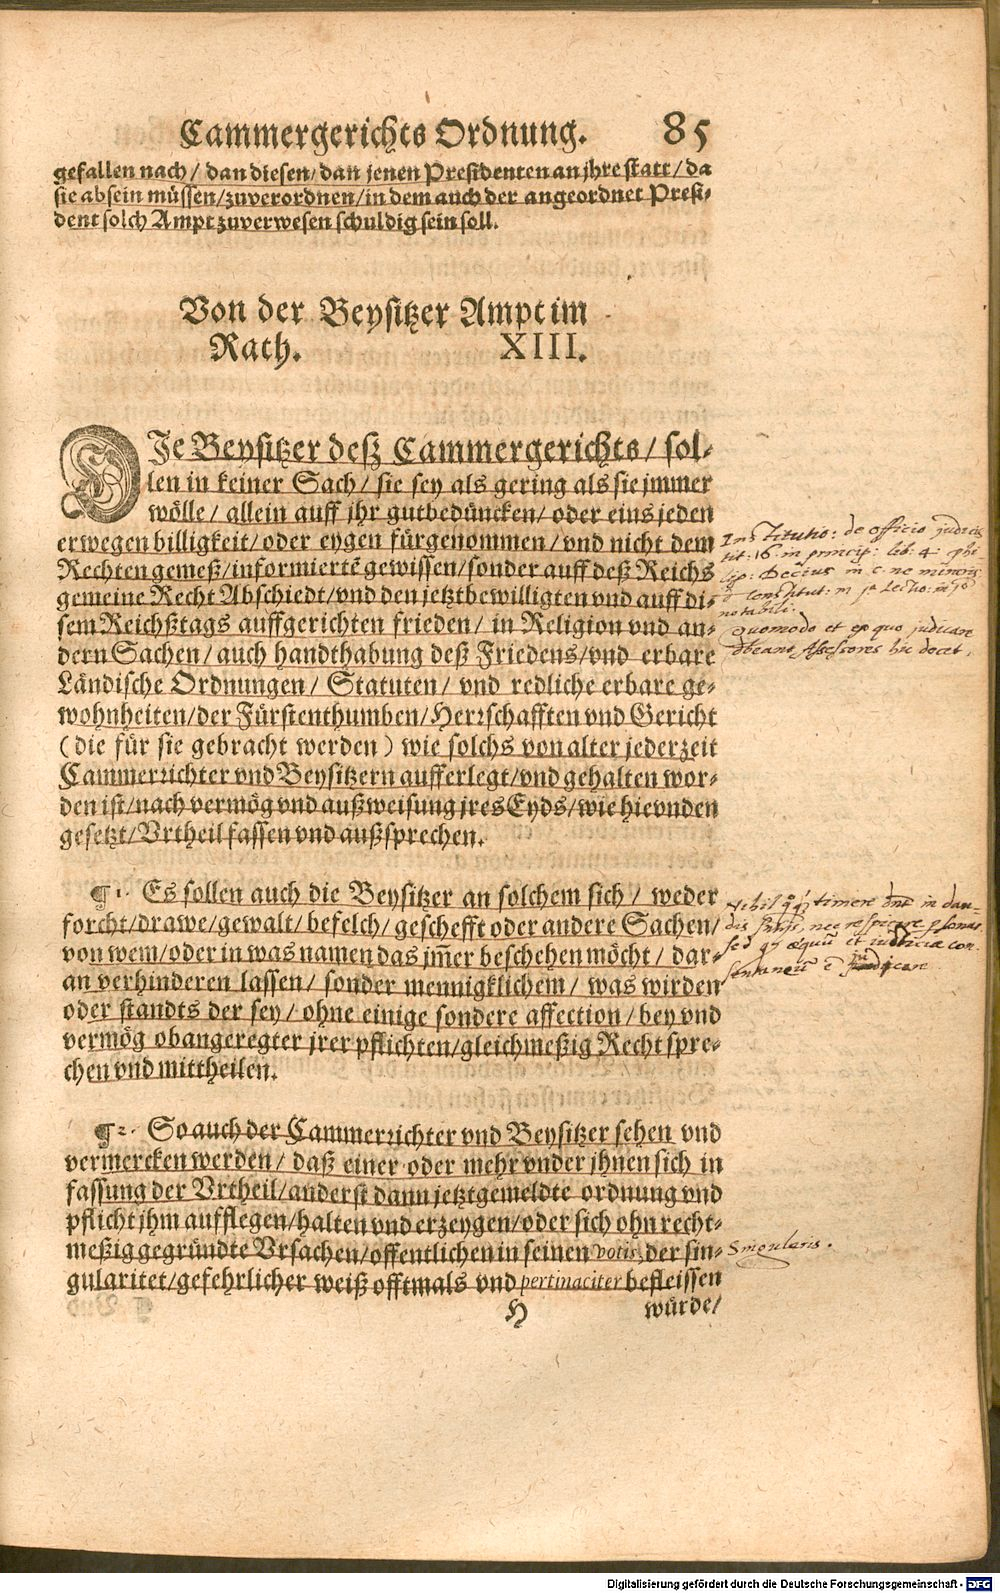 Cammergerichts Ordnung. 85
gefallen nach / dan diesen / dan jenen Presidenten an jhre statt / da
sie absein müssen / zuverordnen / in dem auch der angeordnet Presi-
dent solch Ampt zuverwesen schuldig sein soll.
Von der Beysitzer Ampt im
Rath. XIII.
DIe Beysitzer deß Cammergerichts / sol-
len in keiner Sach / sie sey als gering als sie jmmer
wölle / allein auff jhr gutbedüncken / oder eins jeden
erwegen billigkeit / oder eygen fürgenommen / vnd nicht dem
Rechten gemeß / informiertẽ gewissen / sonder auff deß Reichs
gemeine Recht Abschiedt / vnd den jetzt bewilligten vnd auff di-
sem Reichßtags auffgerichten frieden / in Religion vnd an-
dern Sachen / auch handthabung deß Friedens / vnd erbare
Ländische Ordnungen / Statuten / vnd redliche erbare ge-
wohnheiten / der Fürstenthumben / Herrschafften vnd Gericht
(die für sie gebracht werden) wie solchs von alter jederzeit
Cammerrichter vnd Beysitzern aufferlegt / vnd gehalten wor-
den ist / nach vermög vnd außweisung jres Eyds / wie hievnden
gesetzt / Vrtheil fassen vnd außsprechen.
Institutio: de officio judicis
tit: 16 in princip: lib: 4:
Decius in c. ne minoris
notabile.
Quomodo et ex quo judicare
debeant Assessores hic docet.
¶ 1. Es sollen auch die Beysitzer an solchem sich / weder
forcht / drawe / gewalt / befelch / geschefft oder andere Sachen /
von wem / oder in was namen das jm̃er beschehen möcht / dar-
an verhinderen lassen / sonder mennigklichem / was wirden
oder standts der sey / ohne einige sondere affection / bey vnd
vermög obangeregter jrer pflichten / gleichmeßig Recht spre-
chen vnd mittheilen.
Nihil timere in dan-
dis nec respicere
sed et con
judicare
¶ 2. So auch der Cammerrichter vnd Beysitzer sehen vnd
vermercken werden / daß einer oder mehr vnder jhnen sich in
fassung der Vrtheil / anderst dann jetztgemeldte ordnung vnd
pflicht jhm aufflegen / halten vnd erzeygen / oder sich ohn recht-
meßig gegründte Vrsachen / offentlichen in seinen votis, der sin-
gularitet / gefehrlicher weiß offtmals vnd pertinaciter befleissen
Singularis.
H würde /
Digitalisierung gefördert durch die Deutsche Forschungsgemeinschaft - DFG